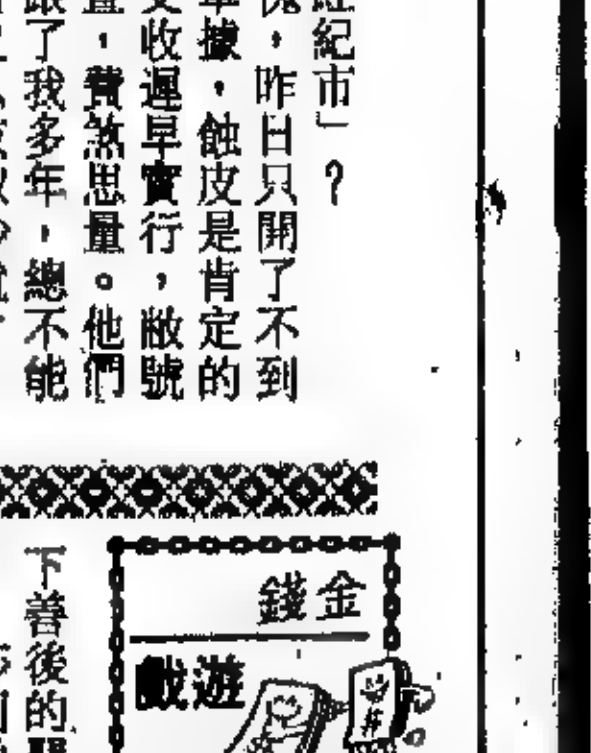 紀市」？
，昨日只開了不到
據，蝕皮是肯定的
收遲早實行，敝號
，費煞思量。他們
了我多年，總不能
金錢
遊戲
下善後的